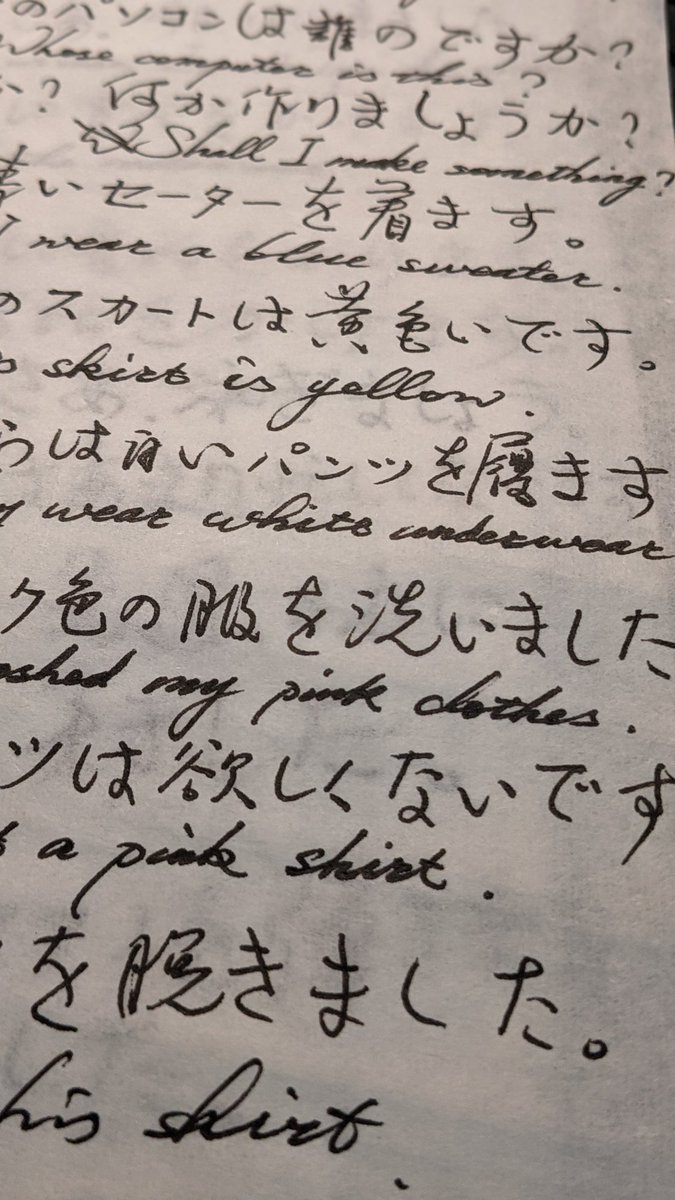 のパソコンは誰のですか?
Whose computer is this?
か? 何か作りましょうか?
Shall I make something?
青いセーターを着ます。
I wear a blue sweater.
のスカートは黄色いです。
skirt is yellow.
らは白いパンツを履きます
wear white underwear
ク色の服を洗いました
washed my pink clothes.
ツは欲しくないです
a pink shirt.
を脱きました。
his shirt.